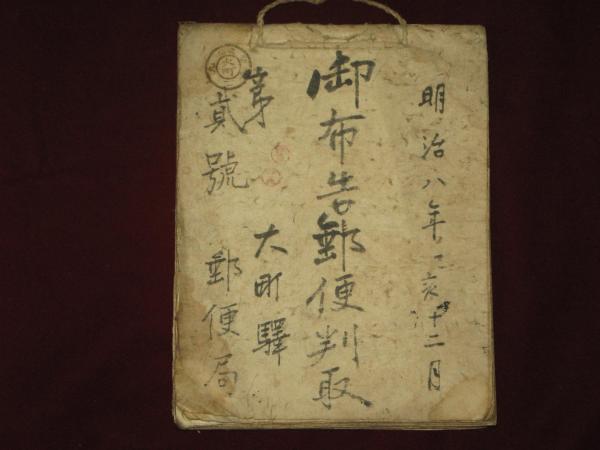 明治八年乙亥十二月
御布告郵便判取
第貳號
大町驛
郵便局
大町